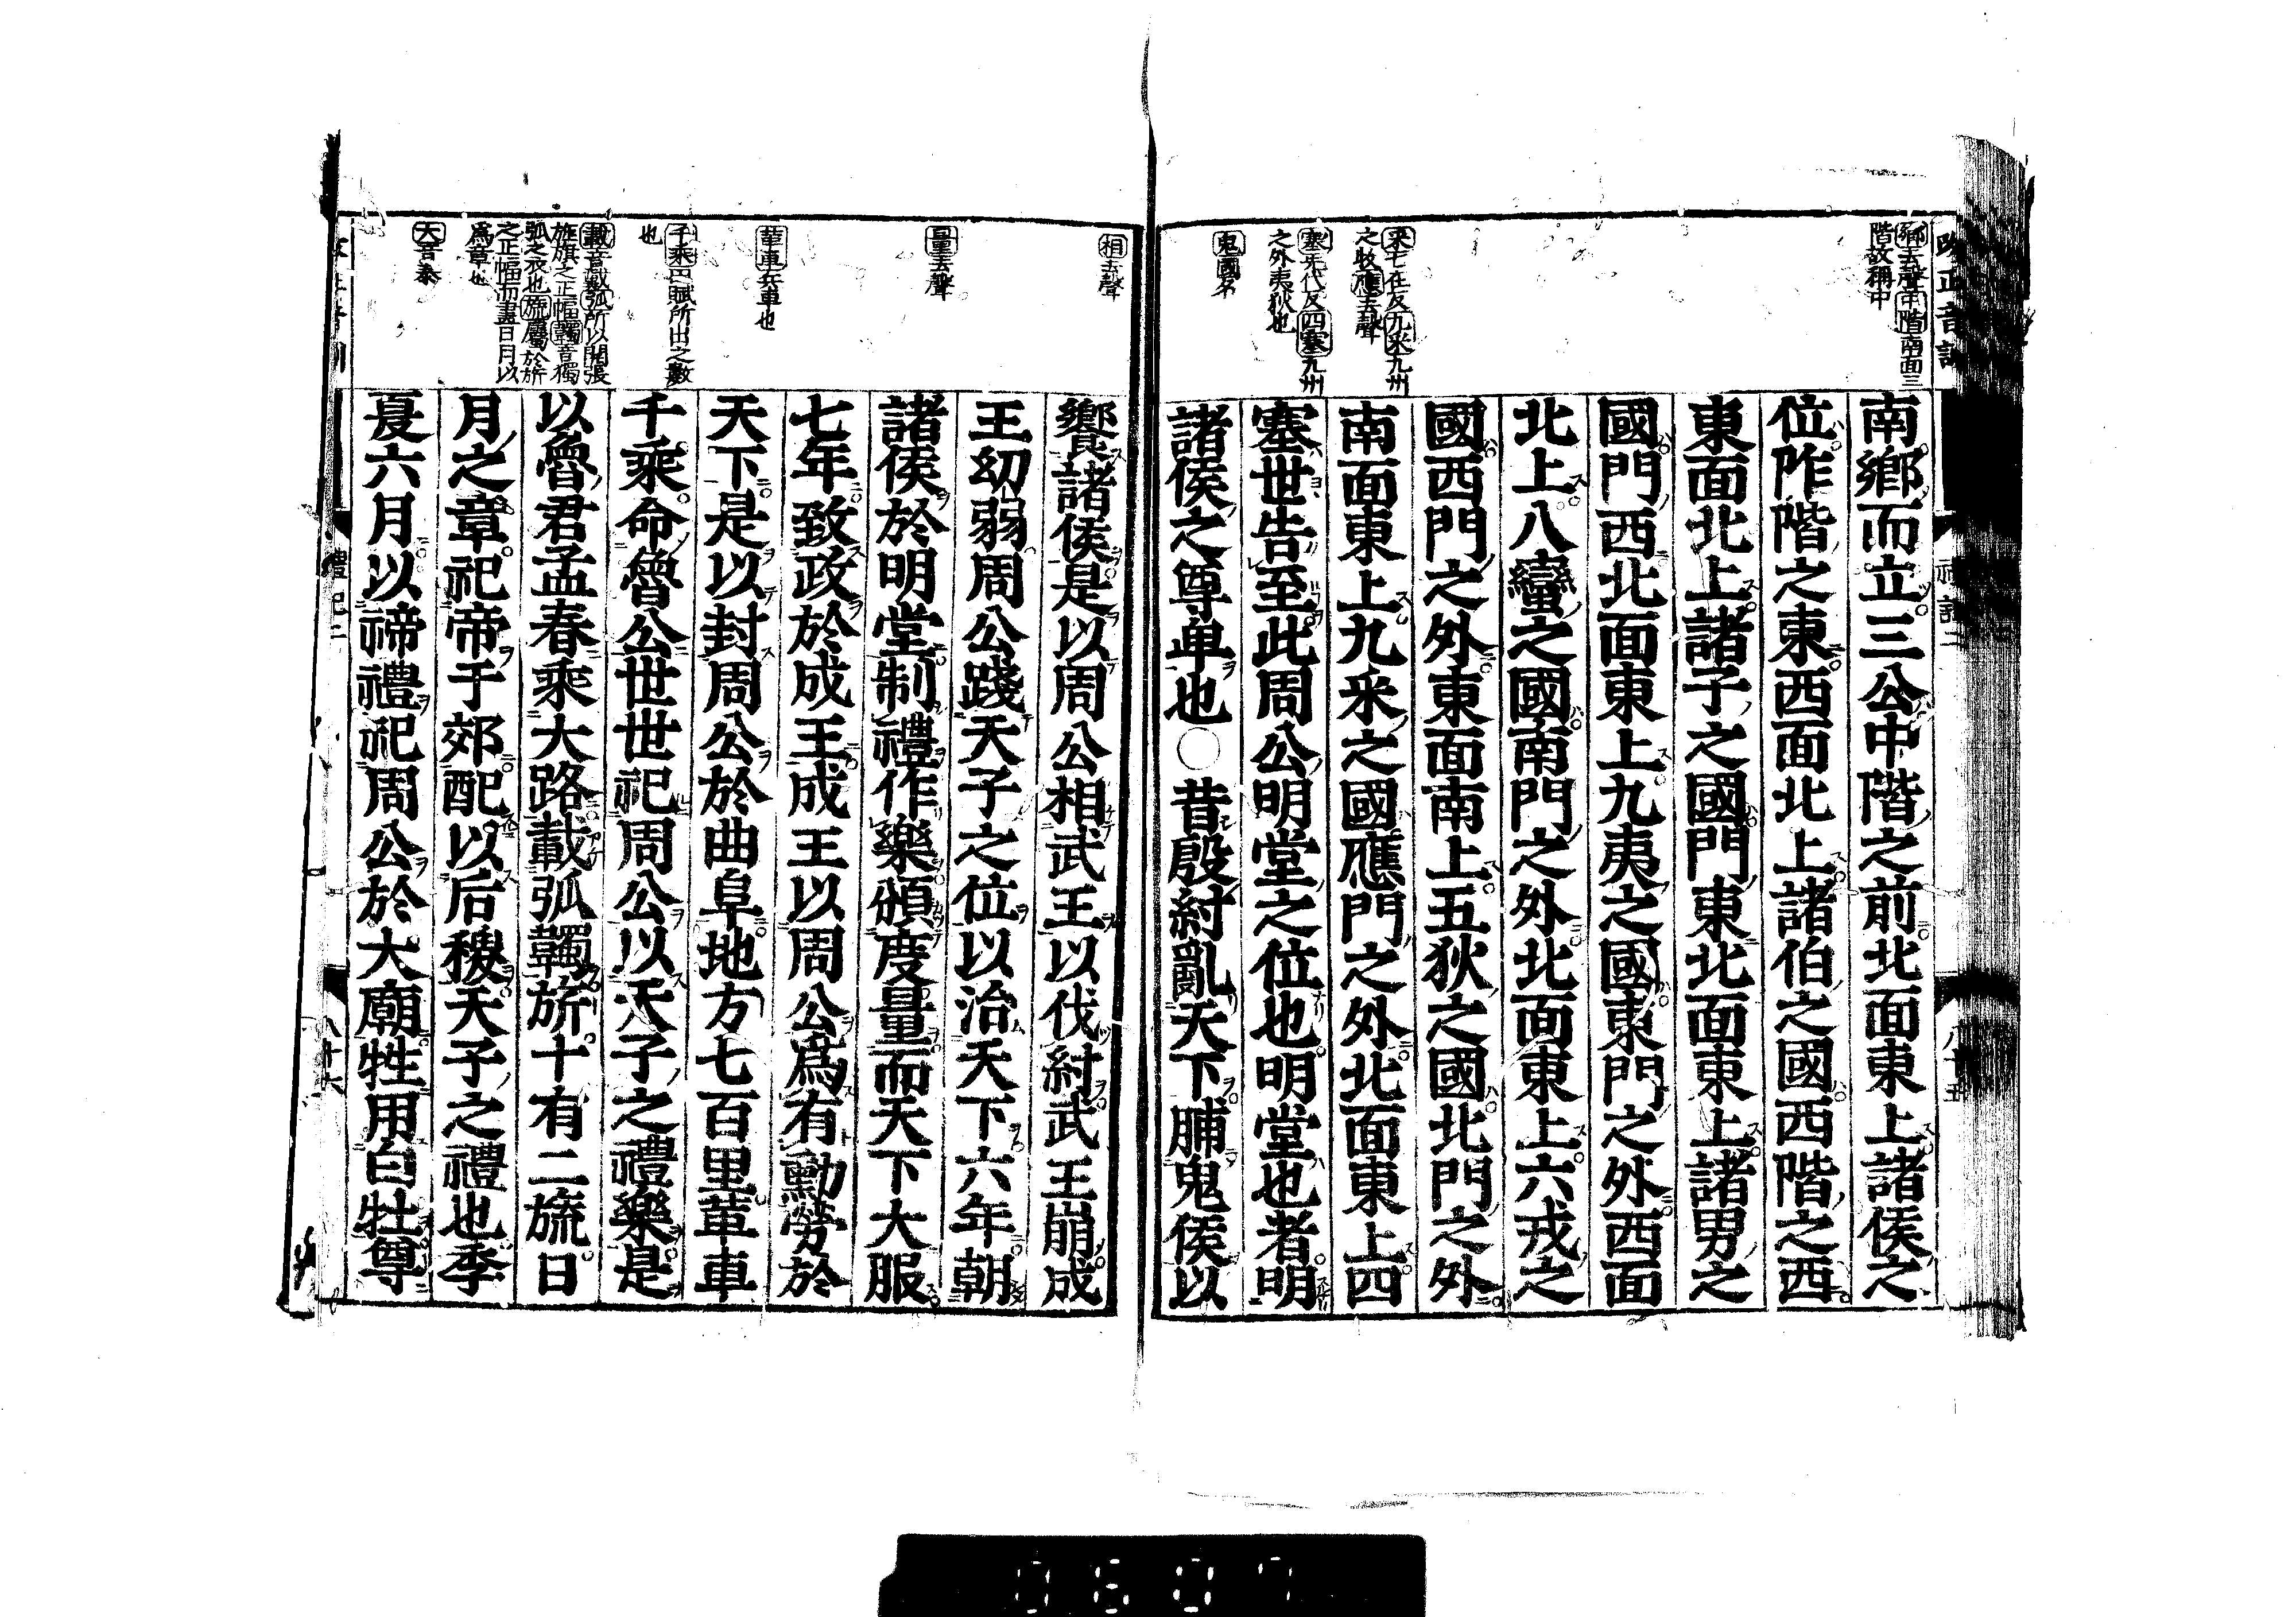 改正音訓
禮記二
鄉去聲中階南面三
階故稱中
采七在反九采九州
之牧應去聲
塞先代反四塞九州
之外夷狄也
鬼國名
南鄉而立三公中階之前北面東上諸侯之
位阼階之東西面北上諸伯之國西階之西
東面北上諸子之國門東北面東上諸男之
國門西北面東上九夷之國東門之外西面
北上八蠻之國南門之外北面東上六戎之
國西門之外東面南上五狄之國北門之外
南面東上九采之國應門之外北面東上四
塞世告至此周公明堂之位也明堂也者明
諸侯之尊卑也○昔殷紂亂天下脯鬼侯以
相去聲
量去聲
革車兵車也
千乘田賦所出之數
也
載音戴弧所以開張
旌旗之正幅韣音獨
弧之衣也旒屬於旂
之正幅而畫日月以
爲章也
大音泰
饗諸侯是以周公相武王以伐紂武王崩成
王幼弱周公踐天子之位以治天下六年朝
諸侯於明堂制禮作樂頒度量而天下大服
七年致政於成王成王以周公爲有勳勞於
天下是以封周公於曲阜地方七百里革車
千乘命魯公世世祀周公以天子之禮樂是
以魯君孟春乘大路載弧韣旂十有二旒日
月之章祀帝于郊配以后稷天子之禮也季
夏六月以禘禮祀周公於大廟牲用白牡尊
禮記二
八十六
0607